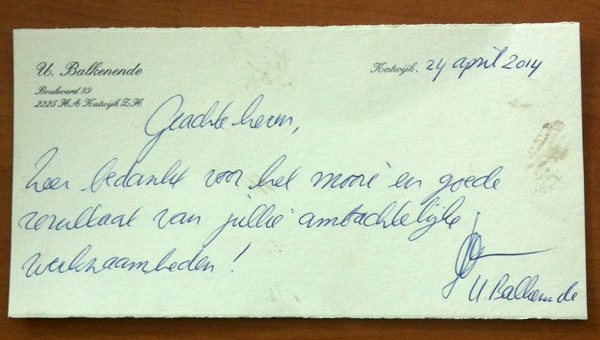 U. Balkenende
Boulevard 89
2225 HA Katwijk Z.H.
Katwijk, 24 april 2014
Geachte heren,
Zeer bedankt voor het mooie en goede
resultaat van jullie ambachtelijke
werkzaamheden!
U Balkenende